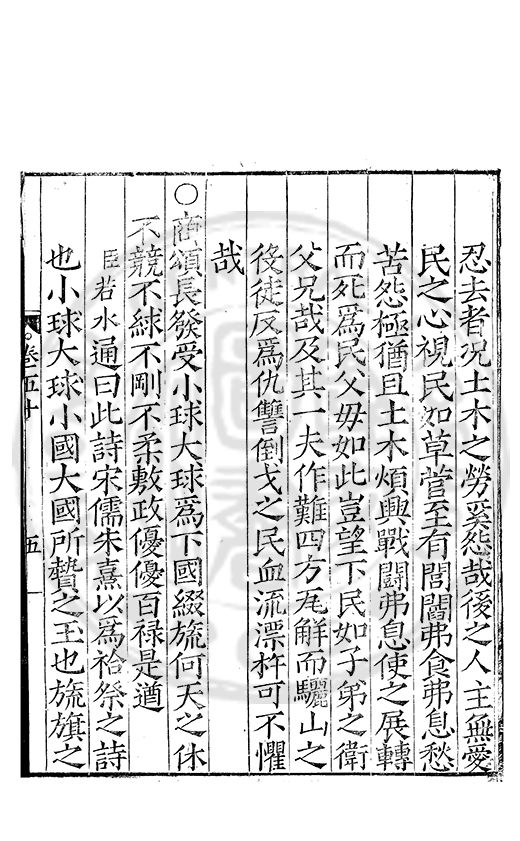 忍去者况土木之勞奚怨哉後之人主無愛
民之心視民如草菅至有閭閻弗食弗息愁
苦怨極猶且土木煩興戰鬬弗息使之展轉
而死爲民父毋如此豈望下民如子弟之衛
父兄哉及其一夫作難四方瓦解而驪山之
後徒反爲仇讐倒戈之民血流漂杵可不懼
哉
○商頌長發受小球大球爲下國綴旒何天之休
不競不絿不剛不柔敷政優優百禄是遒
臣若水通曰此詩宋儒朱熹以爲祫祭之詩
也小球大球小國大國所贄之玉也旒旗之
卷二五十
五